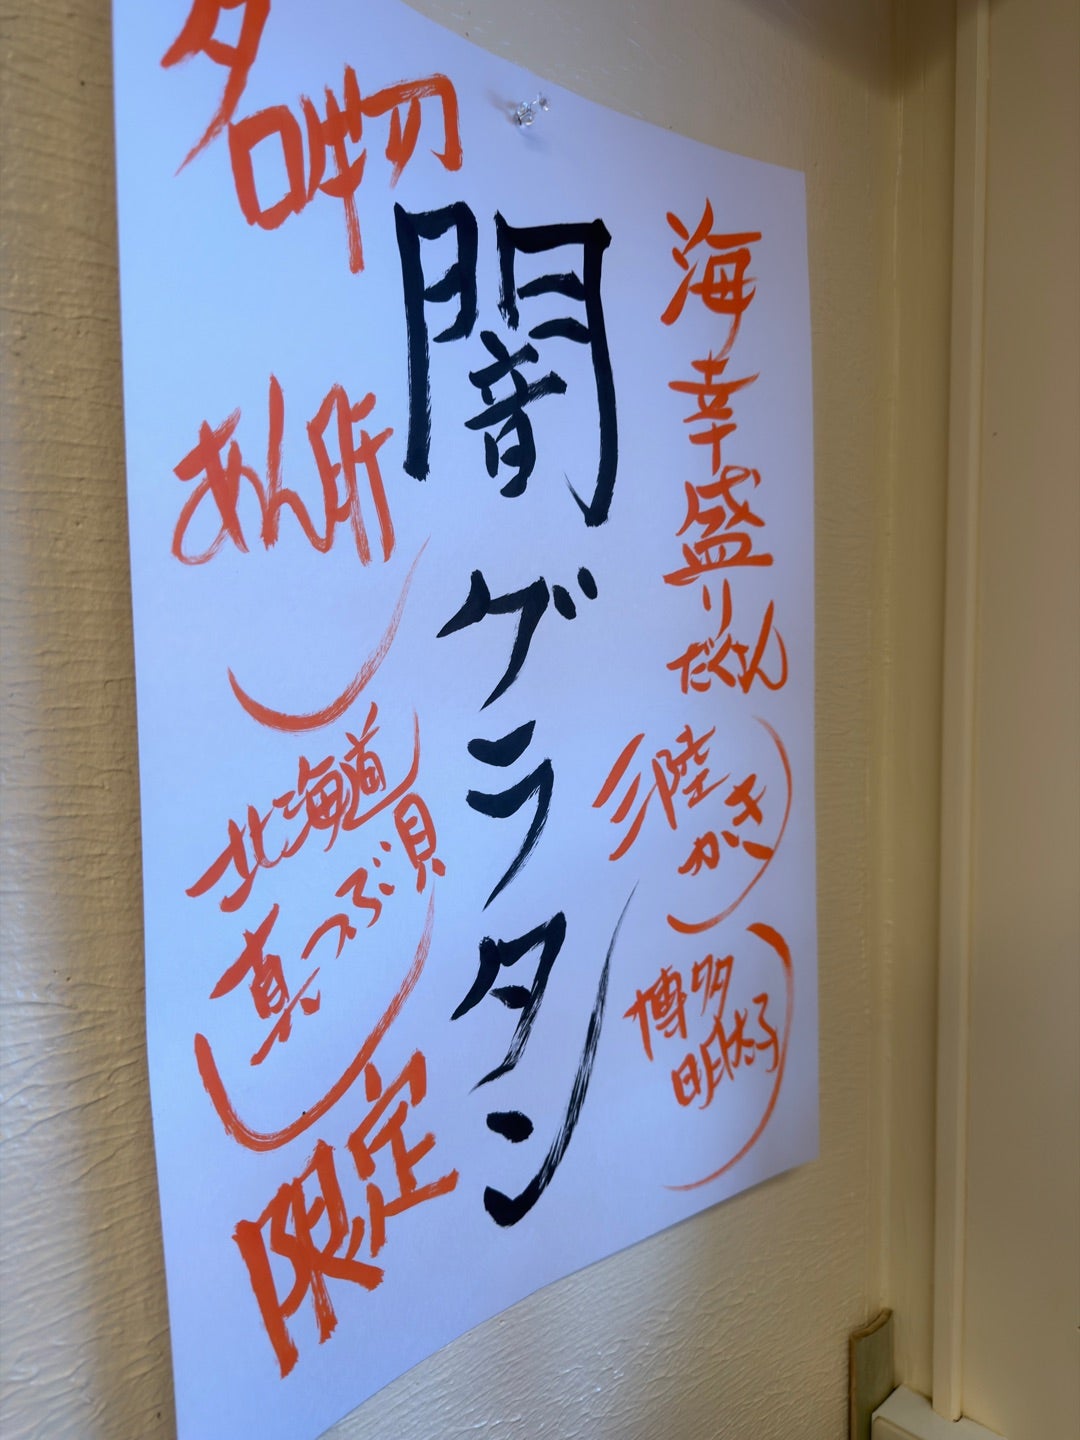 名物
闇グラタン
海幸盛りだくさん
三陸
かき
博多
明太子
あん肝
北海道
真つぶ貝
限定